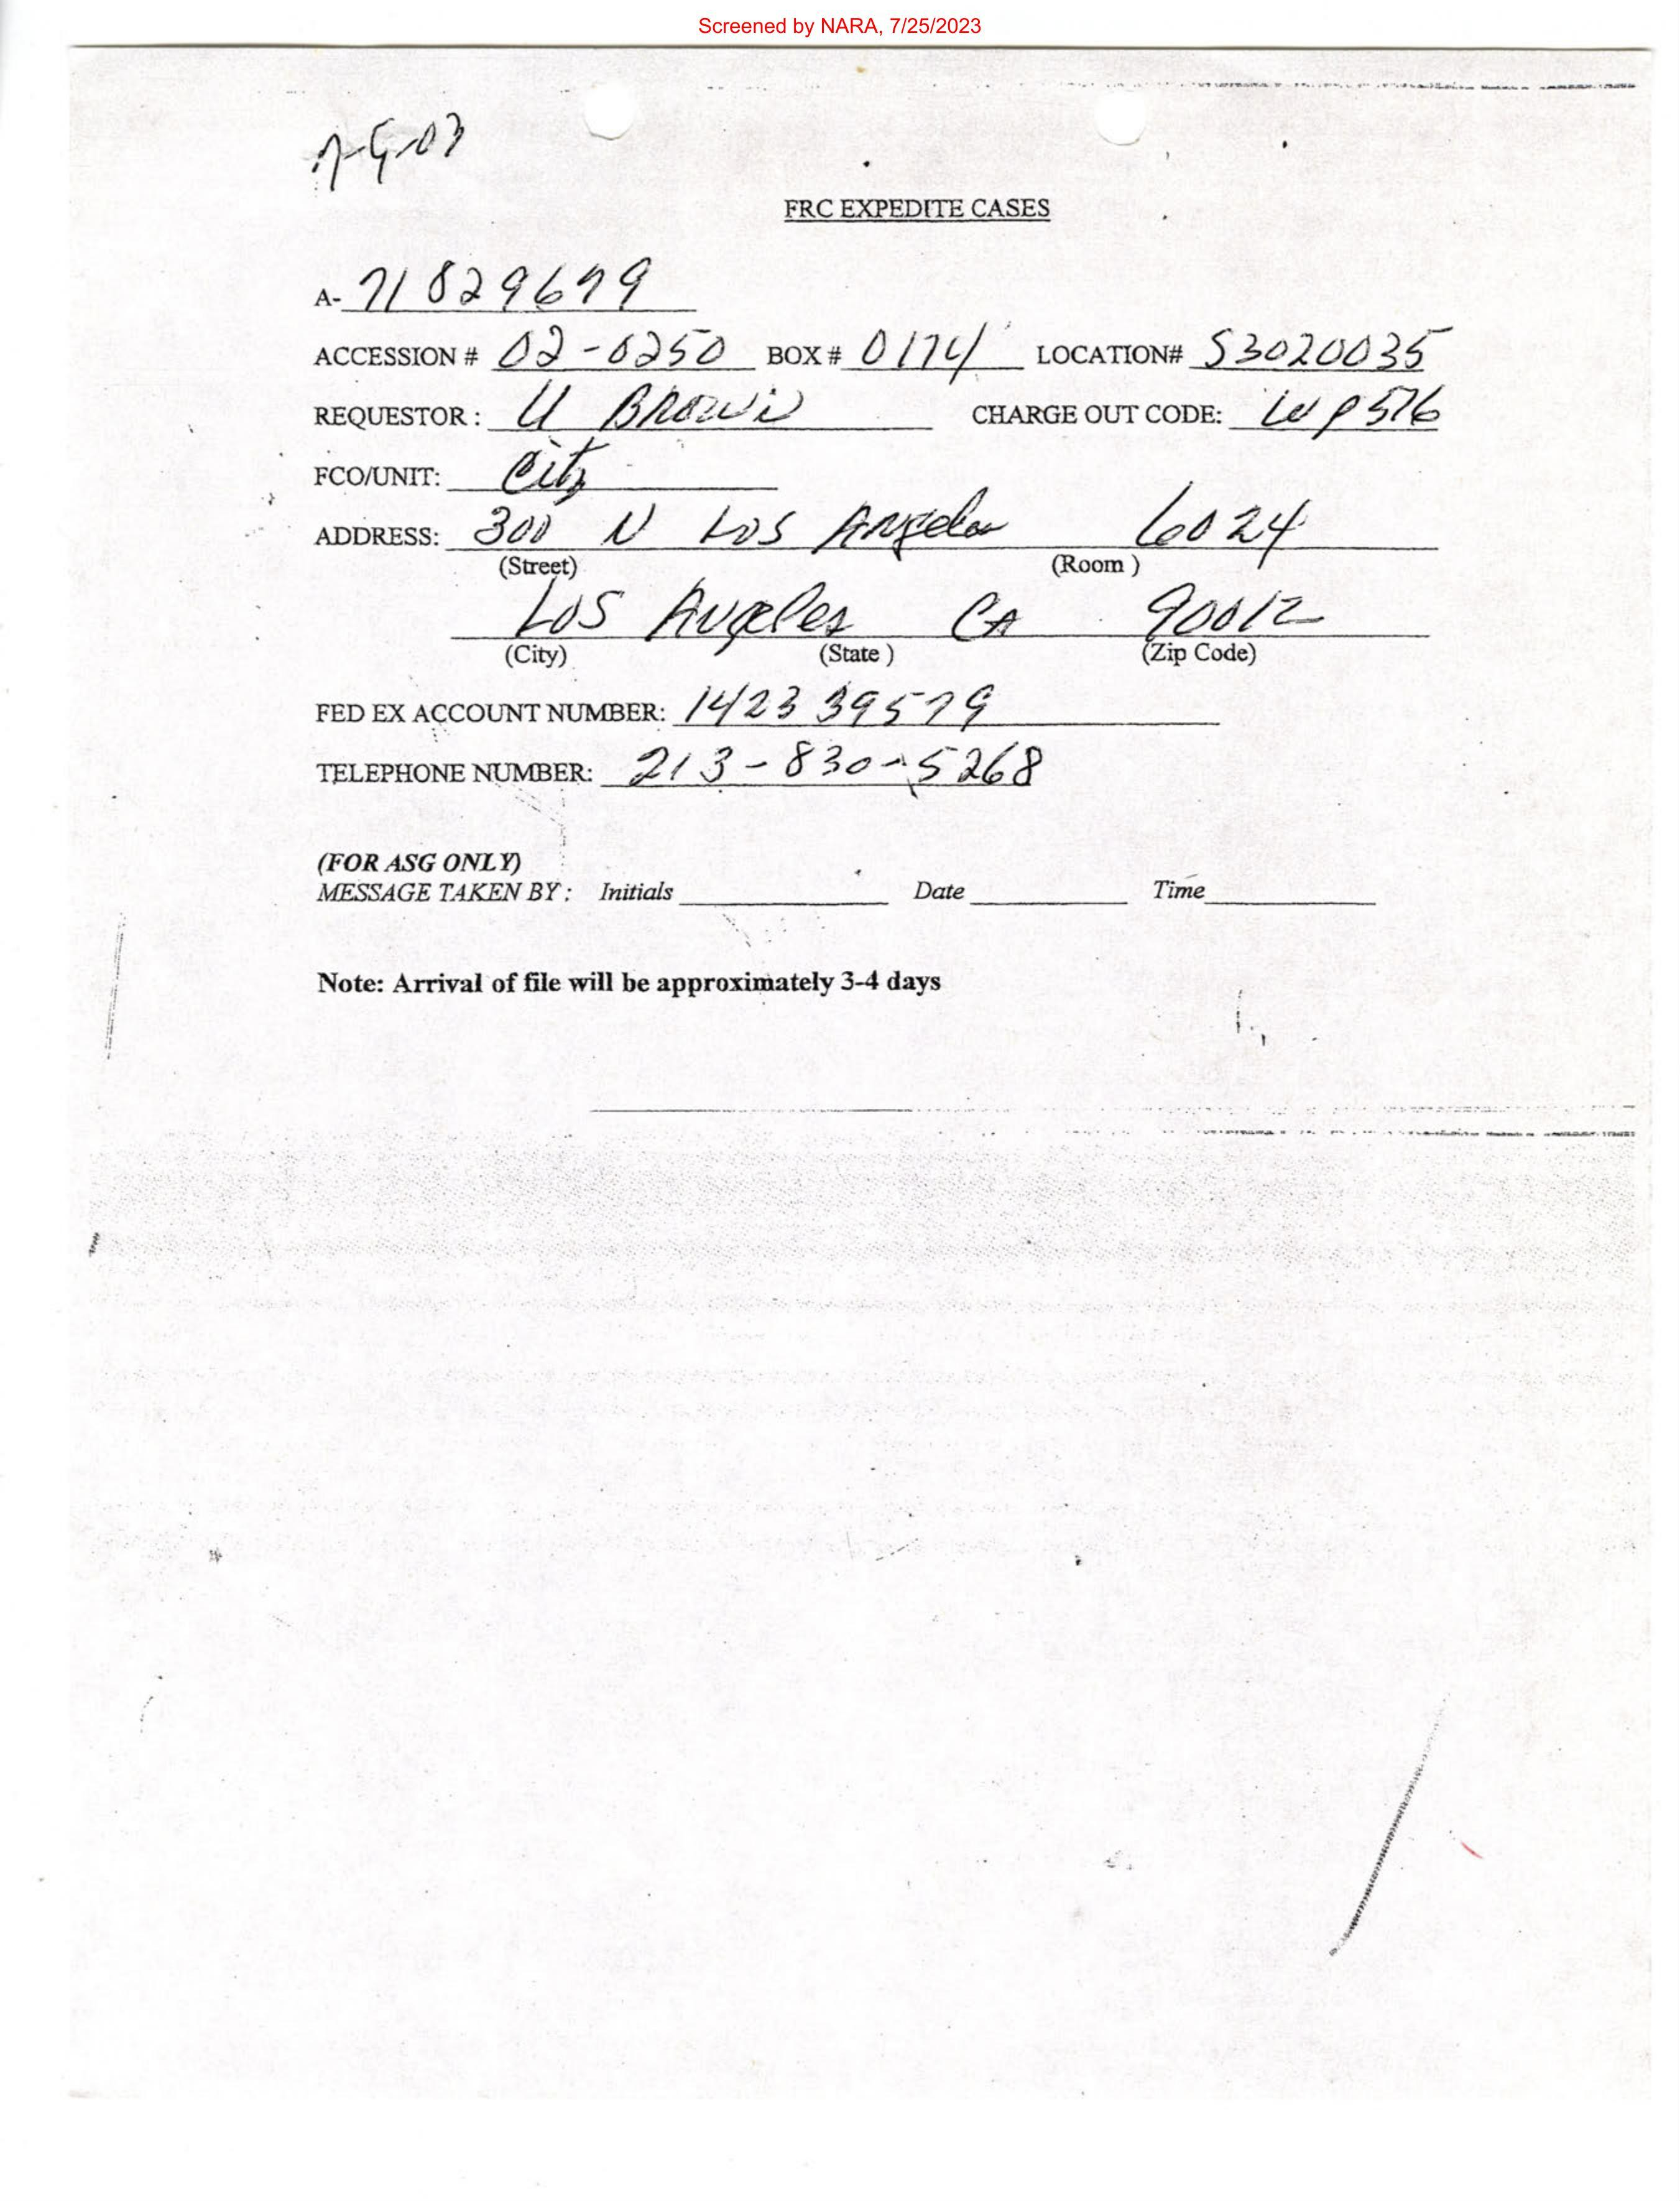 Screened by NARA, 7/25/2023
FRC EXPEDITE CASES
A- 71829679
ACCESSION # 02-0250 BOX # 0174 LOCATION# S3020035
REQUESTOR : U BROWN CHARGE OUT CODE: WP576
FCO/UNIT: Citz
ADDRESS: 300 N Los Angeles 6024
(Street) (Room )
Los Angeles CA 90012
(City) (State ) (Zip Code)
FED EX ACCOUNT NUMBER: 1423 39579
TELEPHONE NUMBER: 213-830-5268
(FOR ASG ONLY)
MESSAGE TAKEN BY : Initials Date Time
Note: Arrival of file will be approximately 3-4 days